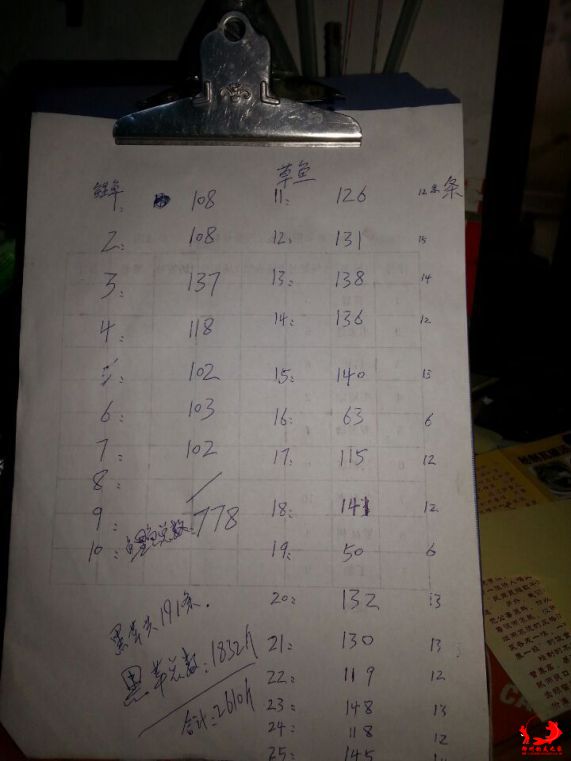 草鱼
1: 108 11: 126 12条 条
2: 108 12: 131 15
3: 137 13: 138 14
4: 118 14: 136 12
5: 102 15: 140 13
6: 103 16: 63 6
7: 102 17: 115 12
8:
9: 778 18: 141 12
10: 总数: 19: 50 6
191条. 20: 132 13
草总数:1832斤 21: 130 13
合计:2610斤 22: 119 12
23: 148 13
24: 118 12
25: 145